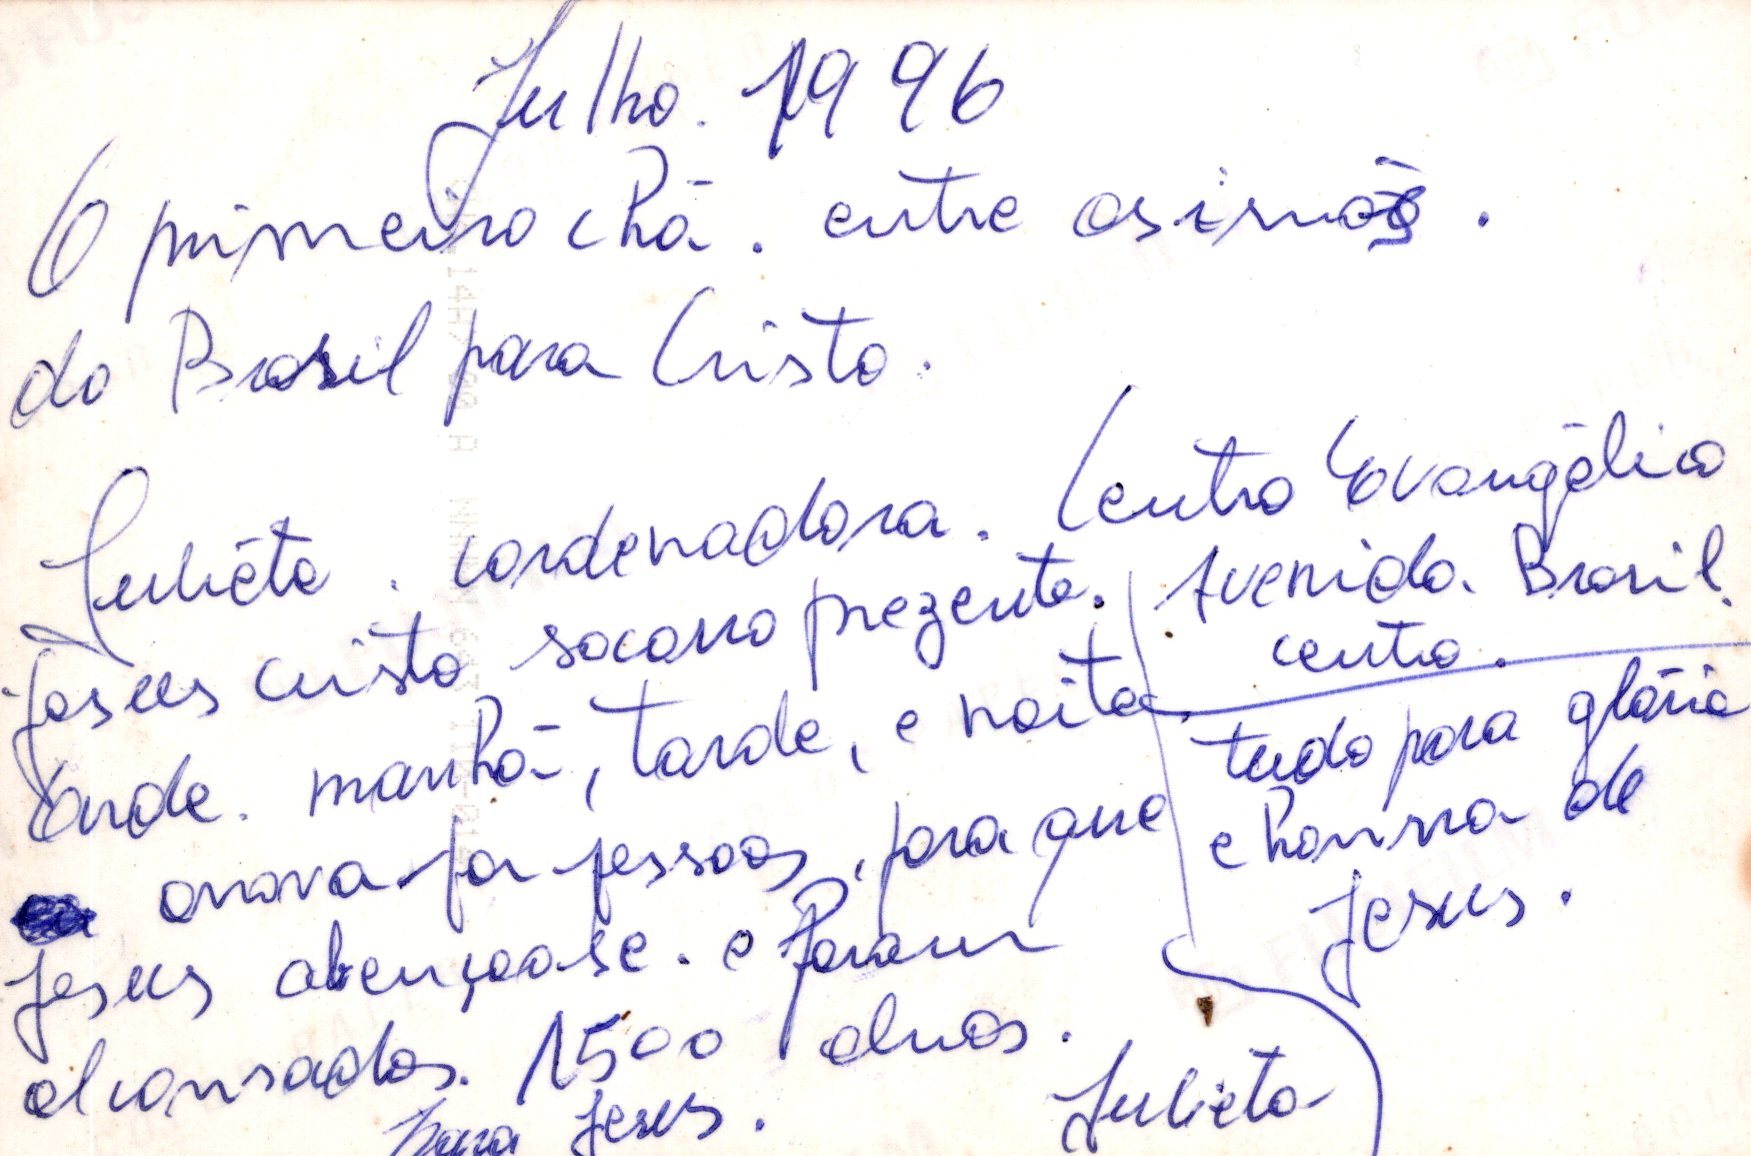 Julho. 1996
O primeiro chá. entre as irmãs.
do Brasil para Cristo.
Juliéta. cordenadora. Centro Evangélico
Jesus cristo socorro prezente. Avenida. Brasil.
centro.
onde. manhã, tarde, e noite.
orava por pessoas, para que
Jesus abençoase. e foram
alconsados. 1500 almas.
para Jesus.
tudo para glória
e honrra de
Jesus.
Julieta